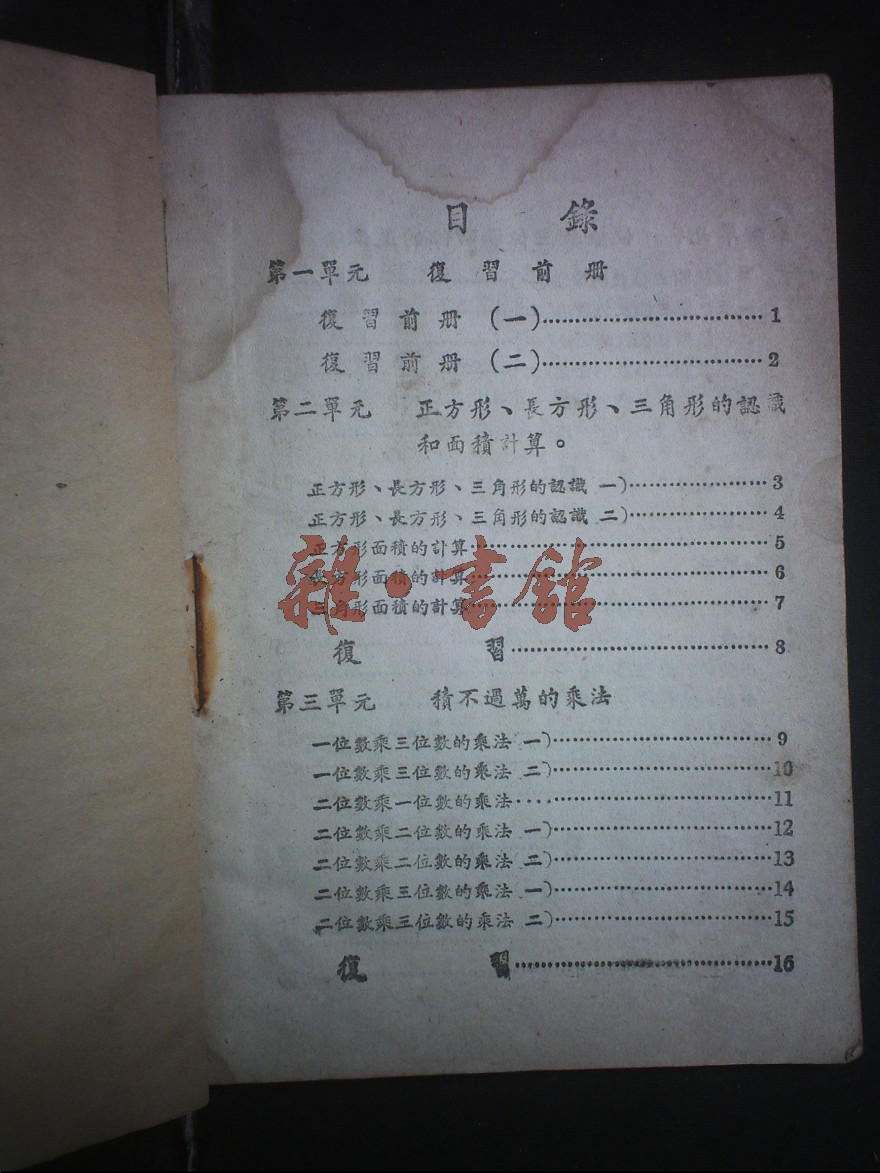 目 錄
第一單元 復習前册
復習前册 (一)…………………………1
復習前册 (二)…………………………2
第二單元 正方形、長方形、三角形的認識
和面積計算。
正方形、長方形、三角形的認識 一)………………3
正方形、長方形、三角形的認識 二)………………4
正方形面積的計算…………………………………5
長方形面積的計算…………………………………6
三角形面積的計算…………………………………7
雜·書館
復 習…………………………8
第三單元 積不過萬的乘法
一位數乘三位數的乘法 一)…………………………9
一位數乘三位數的乘法 二)…………………………10
二位數乘一位數的乘法………………………………11
二位數乘二位數的乘法 一)…………………………12
二位數乘二位數的乘法 二)…………………………13
二位數乘三位數的乘法 一)…………………………14
二位數乘三位數的乘法 二)…………………………15
復 習…………………………16